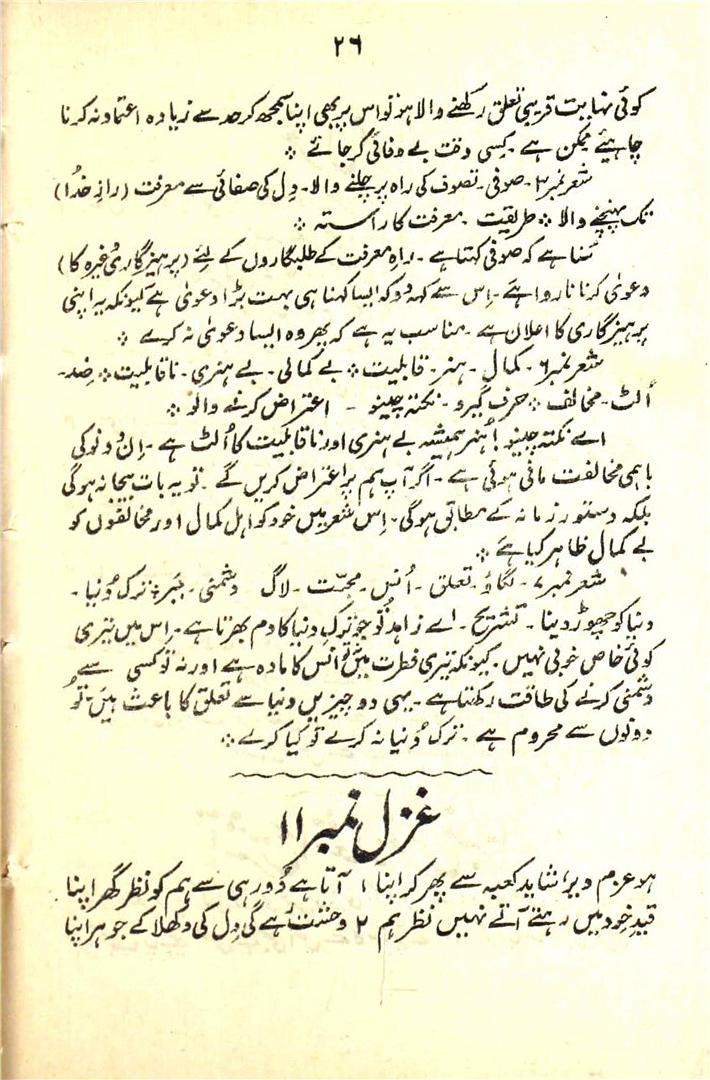 ۲۶
کوئی نہایت قریبی تعلق رکھنے والا ہو تو اس پر بھی اپنا سمجھ کر حد سے زیادہ اعتماد نہ کرنا
چاہیئے ممکن ہے ۔ کسی وقت بے وفائی کر جائے ۞
شعر نمبر ۳ ۔ صوفی ۔ تصوف کی راہ پر چلنے والا ۔ دِل کی صفائی سے معرفت (رازِ خدُا)
تک پہنچنے والا ۞ طریقت ۔ معرفت کا راستہ ۞
سُنا ہے کہ صوفی کہتا ہے ۔ راہِ معرفت کے طلبگاروں کے لئے (پرہیزگاری وُغیرہ کا)
دعویٰ کرنا ناروا ہے ۔ اِس سے کہہ دو کہ ایسا کہنا ہی بہت بڑا دعویٰ ہے کیونکہ یہ اپنی
پرہیزگاری کا اعلان ہے ۔ مناسب یہ ہے کہ پھر وہ ایسا دعویٰ نہ کرے ۞
شعر نمبر ۶ ۔ کمال ۔ ہنر ۔ قابلیت ۞ بے کمالی ۔ بے ہنری ۔ ناقابلیت ۞ ضِد ۔
اُلٹ ۔ مخالف ۞ حرف گیرو ۔ نکتہ چینو ۔ اعتراض کرنے والو ۞
اے نکتہ چینو ! ہُنر ہمیشہ بے ہنری اور ناقابلیت کا اُلٹ ہے ۔ اِن دونو کی
باہمی مخالفت مانی ہوئی ہے ۔ اگر آپ ہم پر اعتراض کریں گے ۔ تو یہ بات بیجا نہ ہوگی
بلکہ دستور زمانہ کے مطابق ہوگی ۔ اِس شعر میں خود کو اہل کمال اور مخالفوں کو
بے کمال ظاہر کیا ہے ۞
شعر نمبر ۷ ۔ لگاؤ ۔ تعلق ۔ اُنس ۔ محبّت ۔ لاگ دشمنی ۔ بَیر ۞ ترک دُنیا ۔
دنیا کو چھوڑ دینا ۔ تشریح ۔ اے زاہد تُو جو ترک دنیا کا دم بھرتا ہے ۔ اس میں تیری
کوئی خاص خوبی نہیں ۔ کیونکہ تیری فطرت میں نہ تو اُنس کا مادہ ہے اور نہ تو کسی سے
دشمنی کرنے کی طاقت رکھتا ہے ۔ یہی دو چیزیں دنیا سے تعلق کا باعث ہیں ۔ تُو
دونوں سے محروم ہے ۔ ترک دُنیا نہ کرے تو کیا کرے ۞
غزل نمبر ۱۱
ہو عزم دیر شاید کعبہ سے پھر کر اپنا ۱ آتا ہے دُور ہی سے ہم کو نظر گھر اپنا
قیدِ خودمیں رہتے آتے نہیں نظر ہم ۲ وحشت رہے گی دِل کی دکھلا کے جوہر اپنا